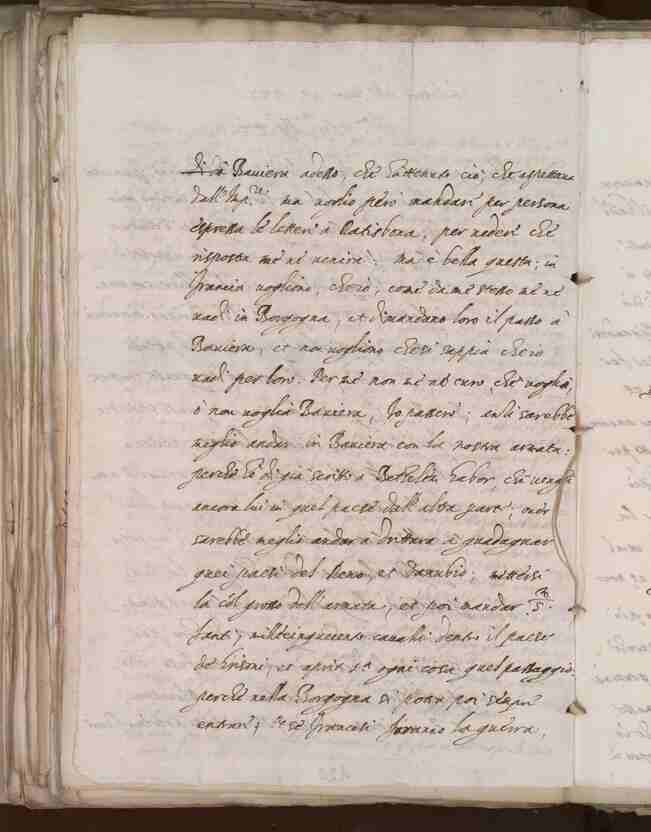 di di Baviera adesso, che hà ottenuto ciò, che aspettava
dall'Imp.re; mà voglio però mandar per persona
espressa le lettere à Ratisbona, per veder che
risposta me nè venirà. Ma è bella questa; in
Francia vogliono, ch'io, come da me stesso me ne
vadi in Borgogna, et dimandano loro il passo à
Baviera, et non vogliono che si sappia che io
vadi per loro. Per mè non mè nè curo, che voglia,
ò non voglia Baviera, Io passerò; anzi sarebbe
meglio andar in Baviera con la nostra armata:
perche hò di già scritto à Bethelem Gabor, che venghi
ancora lui in quel paese dall'altra parte, over
sarebbe meglio andar à drittura à guadagnar
quei paesi del Reno, et Danubio; mettersi
là col grosso dell'armata, et poi mandar 5/m
fanti, mille cinquecento cavalli dentro il paese
de Grisoni, et aprir sop.a ogni cosa quel passaggio,
perche nella Borgogna si potrà poi sempre
entrar; Et se Francesi faranno la guerra,